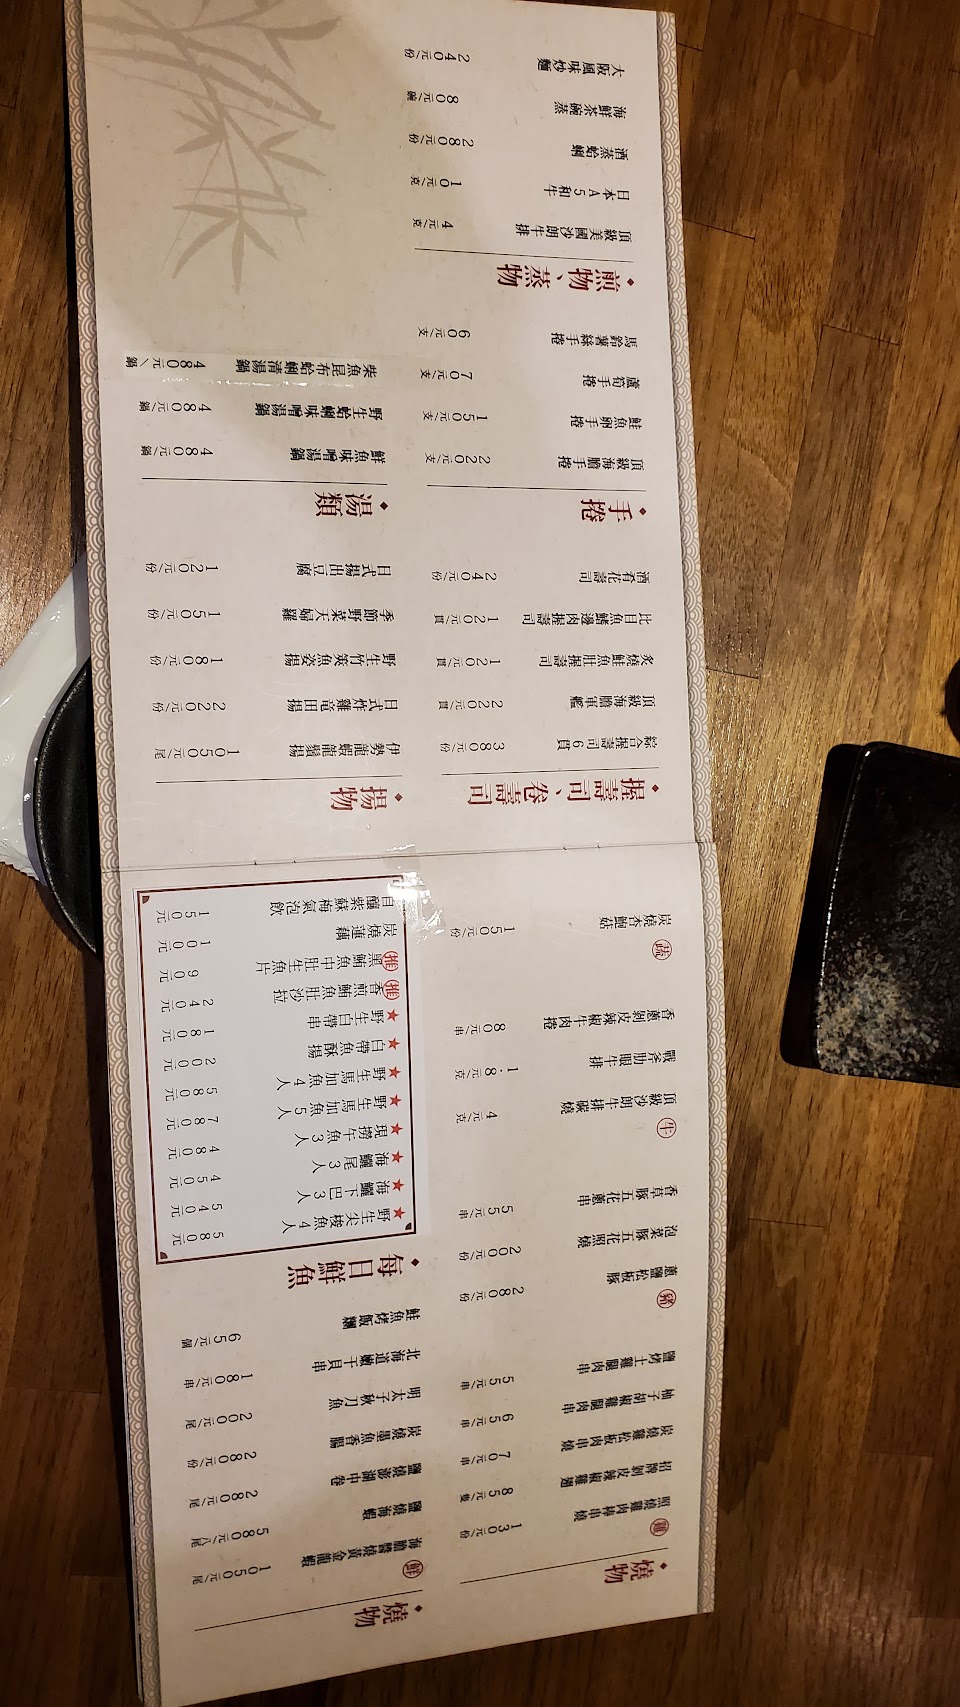 燒物
雞
照燒雞肉棒串燒 130元/份
招牌剝皮辣椒雞翅 85元/隻
炭燒雞松板肉串燒 70元/串
柚子胡椒雞腿肉串 65元/串
鹽烤土雞腿肉串 55元/串
豬
蔥鹽松板豚 280元/份
泡菜豚五花照燒 200元/份
香草豚五花蔥串 55元/串
牛
頂級沙朗牛排碳燒 4元/克
戰斧肋眼牛排 1.8元/克
香蔥剝皮辣椒牛肉捲 80元/串
蔬
炭燒杏鮑菇 150元/份
燒物
鮮
海膽醬燒黃金龍蝦 1050元/尾
鹽燒海蝦 580元/八尾
鹽燒澎湖中卷 280元/尾
炭燒墨魚香腸 280元/份
明太子秋刀魚 200元/尾
北海道嫩干貝串 180元/串
鮭魚烤飯糰 65元/個
每日鮮魚
★野生尖梭魚4人 580元
★海鱺下巴3人 540元
★海鱺尾3人 450元
★現撈午魚3人 480元
★野生馬加魚5人 780元
★野生馬加魚4人 580元
★白帶魚酥揚 200元
★野生白帶串 180元
推 香煎鮪魚肚沙拉 240元
推 黑鮪魚中肚生魚片 90元
炭燒蓮藕 100元
自釀紫蘇梅氣泡飲 150元
握壽司、卷壽司
綜合握壽司6貫 380元/份
頂級海膽軍艦 220元/貫
炙燒鮭魚肚握壽司 120元/貫
比目魚鰭邊肉握壽司 120元/貫
酒肴花壽司 240元/份
手捲
頂級海膽手捲 220元/支
鮭魚卵手捲 150元/支
蘆筍手捲 70元/支
馬鈴薯絲手捲 60元/支
煎物、蒸物
頂級美國沙朗牛排 4元/克
日本A5和牛 10元/克
酒蒸蛤蜊 280元/份
海鮮茶碗蒸 80元/碗
大阪風味炒麵 240元/份
揚物
伊勢龍蝦龍鬚揚 1050元/尾
日式炸雞竜田揚 220元/份
野生竹筴魚姿揚 180元/份
季節野菜天婦羅 150元/份
日式揚出豆腐 120元/份
湯類
鮮魚味噌湯鍋 480元/鍋
野生蛤蜊味噌湯鍋 480元/鍋
柴魚昆布蛤蜊清湯鍋 480元/鍋